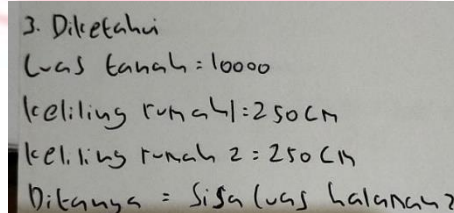 3. Diketahui
Luas tanah = 10000
keliling rumah 1 = 250 cm
keliling rumah 2 = 250 cm
Ditanya = Sisa luas halaman?